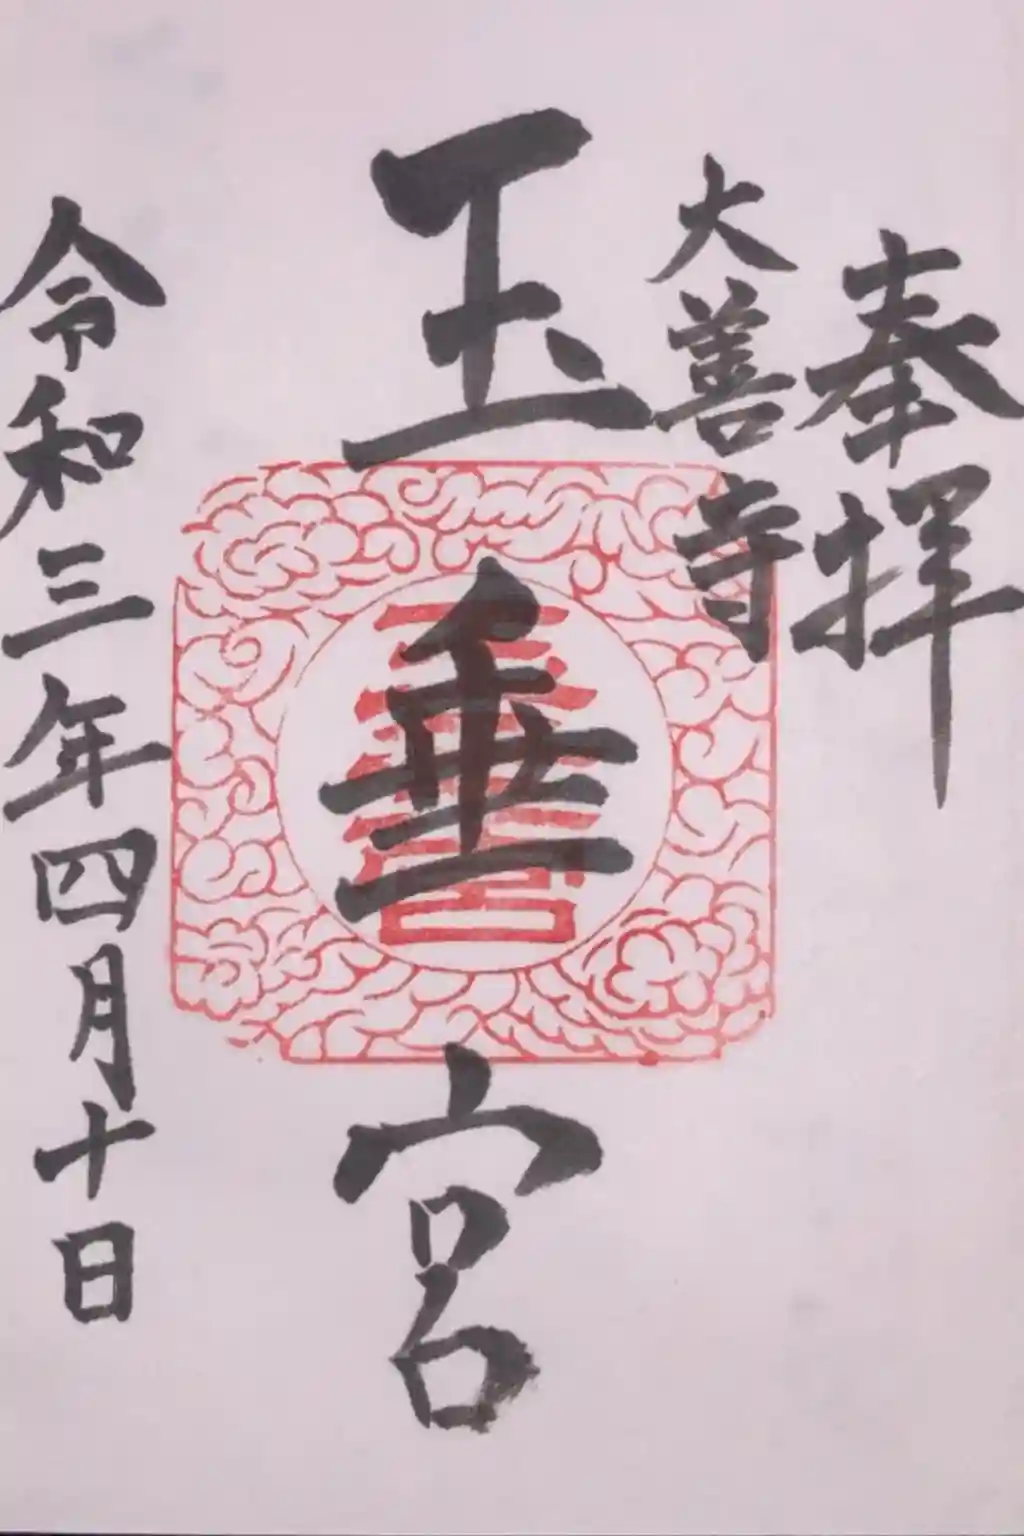 奉拝
大善寺
玉垂宮
令和三年四月十日